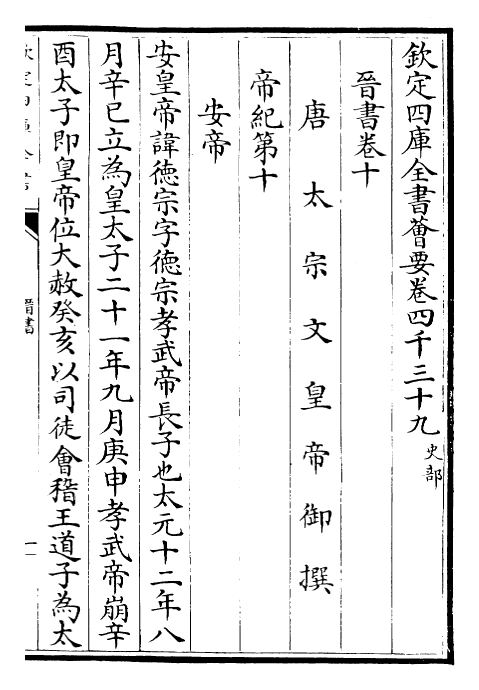 欽定四庫全書薈要卷四千三十九史部
晉書卷十
唐太宗文皇帝御撰
帝紀第十
安帝
安皇帝諱徳宗字徳宗孝武帝長子也太元十二年八
月辛巳立為皇太子二十一年九月庚申孝武帝崩辛
酉太子即皇帝位大赦癸亥以司徒會稽王道子為太
欽定四庫全書
晉書
一